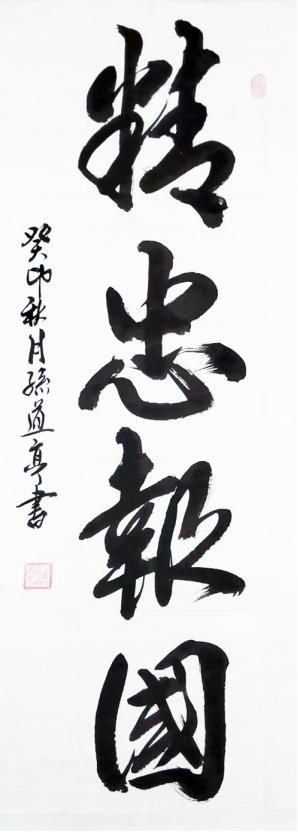 精忠報國
癸卯秋月孫道亭書